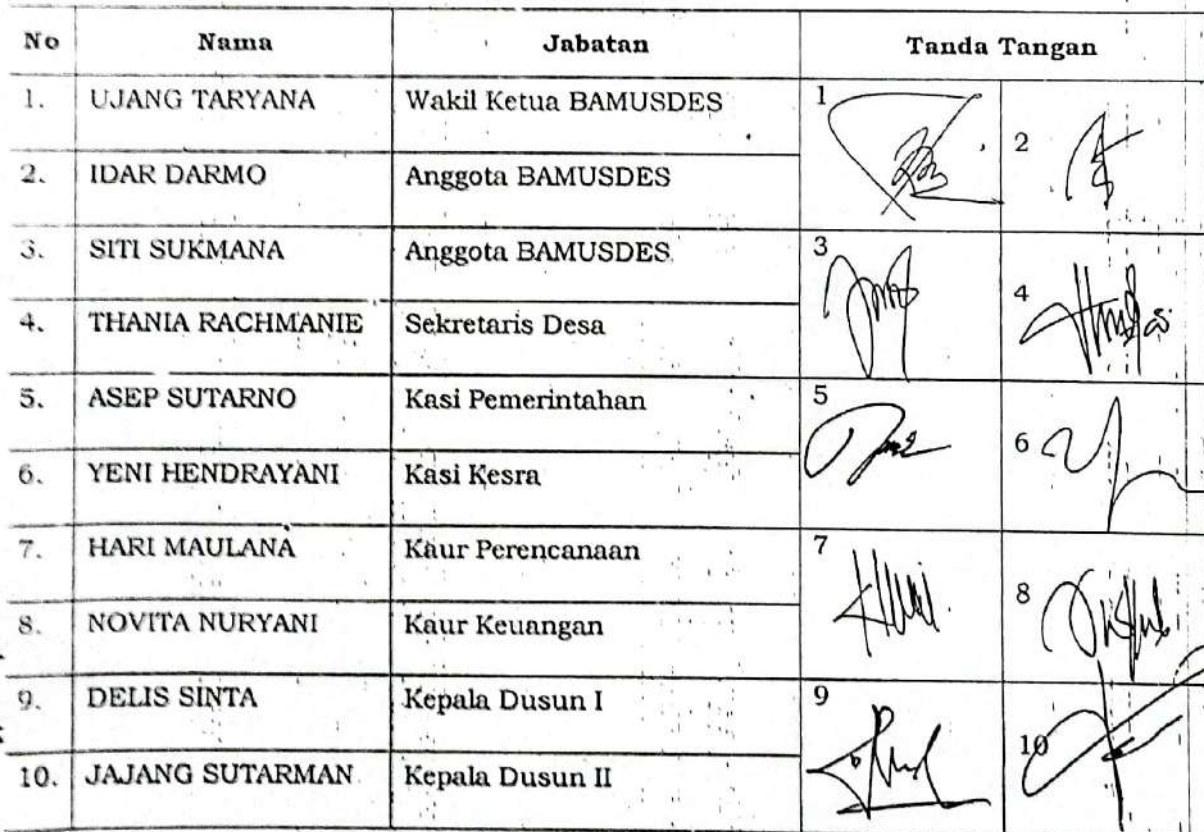 No Nama Jabatan Tanda Tangan
1. UJANG TARYANA Wakil Ketua BAMUSDES 1 2
2. IDAR DARMO Anggota BAMUSDES
3. SITI SUKMANA Anggota BAMUSDES 3 4
4. THANIA RACHMANIE Sekretaris Desa
5. ASEP SUTARNO Kasi Pemerintahan 5 6
6. YENI HENDRAYANI Kasi Kesra
7. HARI MAULANA Kaur Perencanaan 7 8
8. NOVITA NURYANI Kaur Keuangan
9. DELIS SINTA Kepala Dusun I 9 10
10. JAJANG SUTARMAN Kepala Dusun II